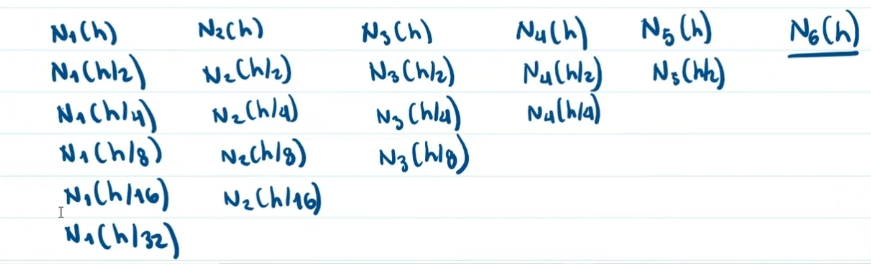 N₁(h) N₂(h) N₃(h) N₄(h) N₅(h) N₆(h)
N₁(h/2) N₂(h/2) N₃(h/2) N₄(h/2) N₅(h/2)
N₁(h/4) N₂(h/4) N₃(h/4) N₄(h/4)
N₁(h/8) N₂(h/8) N₃(h/8)
N₁(h/16) N₂(h/16)
N₁(h/32)